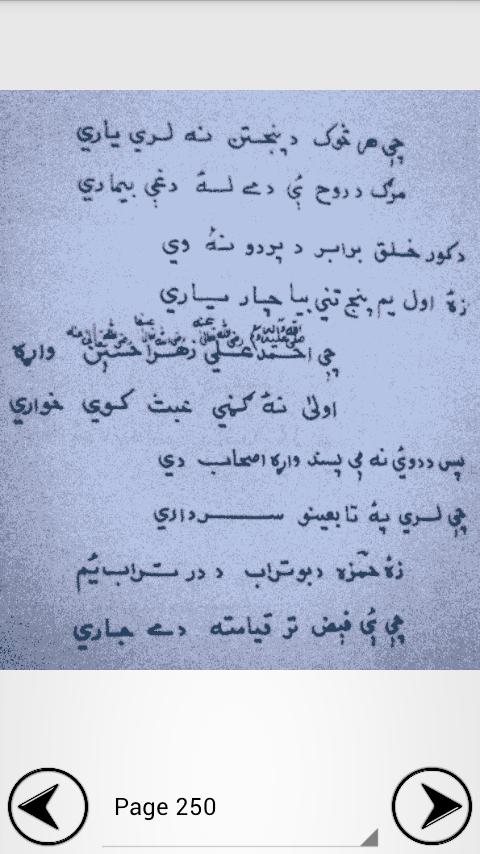 چې هر څوک د پنجتن نه لري ياري
مرګ د روح ئې دے لۀ دغې بيماري
د کور خلق برابر د پردو نۀ وي
زۀ اول يم پنج تني بيا چار ياري
چې احمد علي زهرا حسنين واړه
اولىٰ نۀ ګڼي عبث کوي خواري
پس د دوئ نه مې پسند واړه اصحاب دي
چې لري پۀ تابعينو سرداري
زۀ حمزه د بوتراب د در تراب يم
چې ئې فيض تر قيامته دے جاري
Page 250